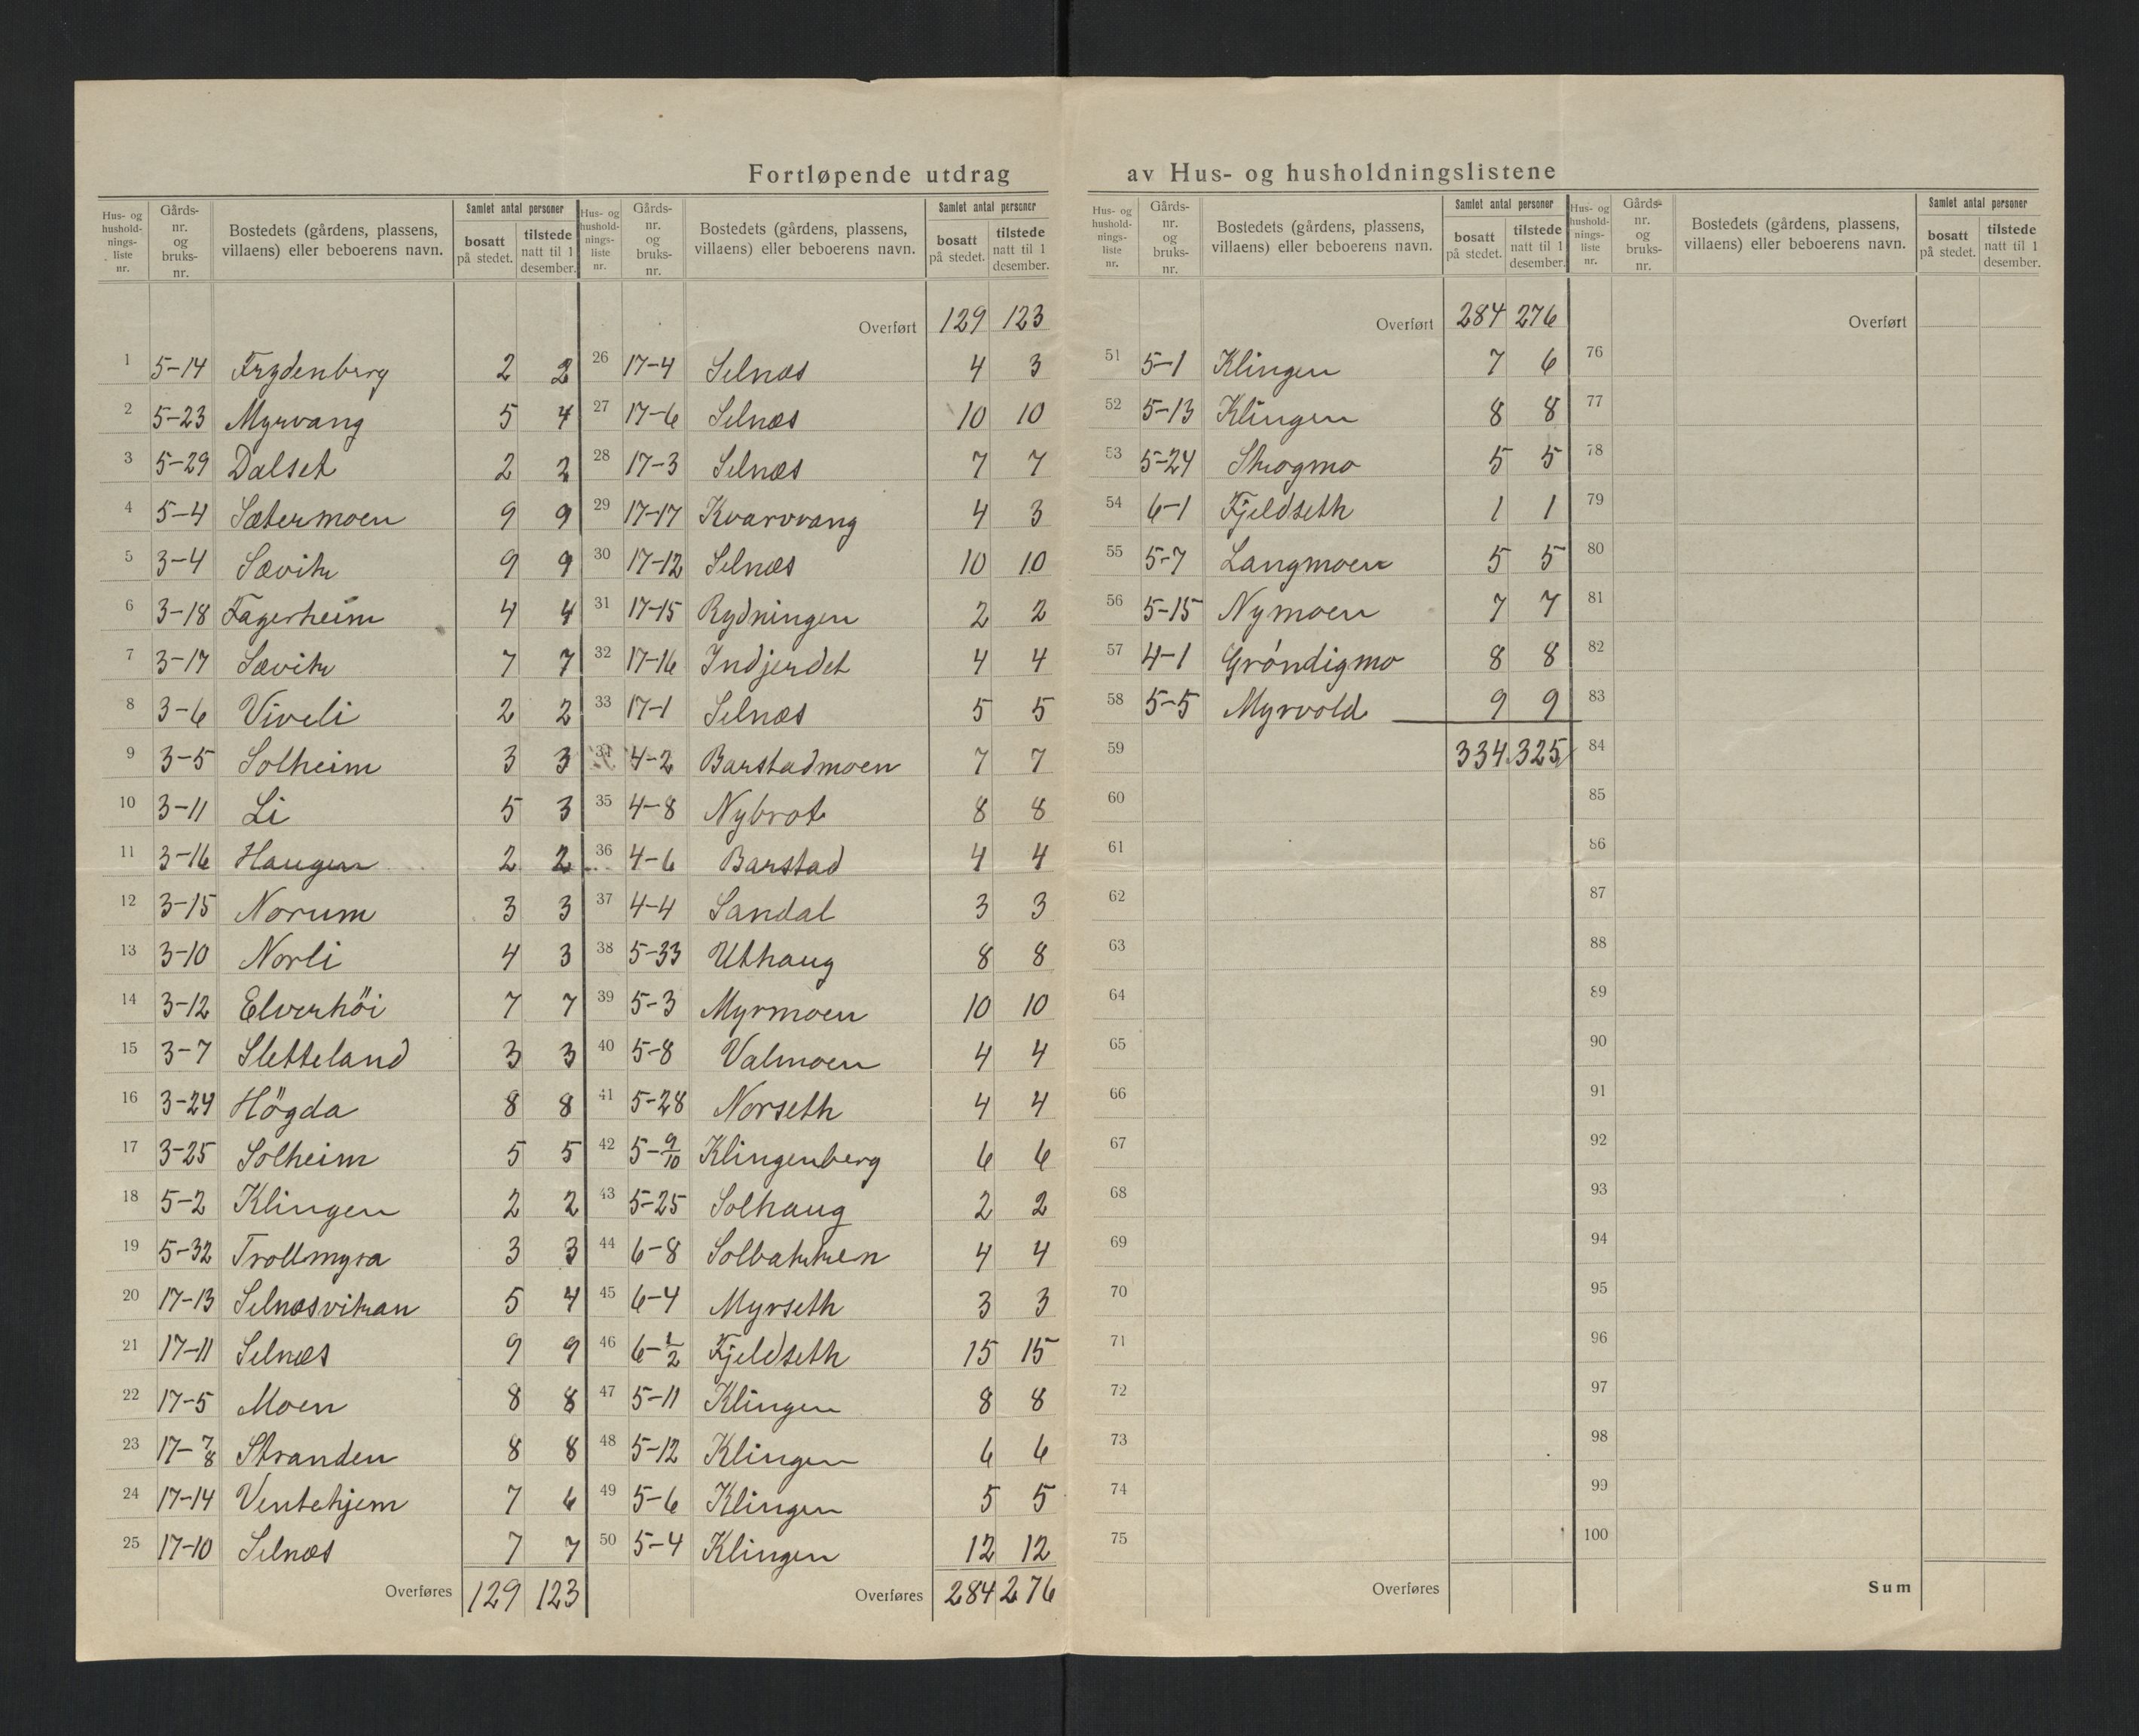 Fortløpende utdrag av Hus- og husholdningslistene
Hus- og hushold-nings-liste nr. Gårds-nr. og bruks-nr. Bostedets (gårdens, plassens, villaens) eller beboerens navn. Samlet antal personer bosatt på stedet. tilstede natt til 1 desember.
1 5-14 Frydenberg 2 2
2 5-23 Myrvang 5 4
3 5-29 Dalset 2 2
4 5-4 Sætermoen 9 9
5 3-4 Sævik 9 9
6 3-18 Fagerheim 4 4
7 3-17 Sævik 7 7
8 3-6 Viveli 2 2
9 3-5 Solheim 3 3
10 3-11 Li 5 3
11 3-16 Haugen 2 2
12 3-15 Norum 3 3
13 3-10 Norli 4 3
14 3-12 Elverhöi 7 7
15 3-7 Sletteland 3 3
16 3-24 Högda 8 8
17 3-25 Solheim 5 5
18 5-2 Klingen 2 2
19 5-32 Trollmyra 3 3
20 17-13 Selnæsvikan 5 4
21 17-11 Selnæs 9 9
22 17-5 Moen 8 8
23 17-7/8 Stranden 8 8
24 17-14 Ventehjem 7 6
25 17-10 Selnæs 7 7
Overføres 129 123
Hus- og hushold-nings-liste nr. Gårds-nr. og bruks-nr. Bostedets (gårdens, plassens, villaens) eller beboerens navn. Samlet antal personer bosatt på stedet. tilstede natt til 1 desember.
Overført 129 123
26 17-4 Selnæs 4 3
27 17-6 Selnæs 10 10
28 17-3 Selnæs 7 7
29 17-17 Kvarvvang 4 3
30 17-12 Selnæs 10 10
31 17-15 Rydningen 2 2
32 17-16 Indjerdet 4 4
33 17-1 Selnæs 5 5
34 4-2 Barstadmoen 7 7
35 4-8 Nybrot 8 8
36 4-6 Barstad 4 4
37 4-4 Sandal 3 3
38 5-33 Uthaug 8 8
39 5-3 Myrmoen 10 10
40 5-8 Valmoen 4 4
41 5-28 Norseth 4 4
42 5-9/10 Klingenberg 6 6
43 5-25 Solhaug 2 2
44 6-8 Solbakken 4 4
45 6-4 Myrseth 3 3
46 6-1/2 Fjeldseth 15 15
47 5-11 Klingen 8 8
48 5-12 Klingen 6 6
49 5-6 Klingen 5 5
50 5-4 Klingen 12 12
Overføres 284 276
Hus- og hushold-nings-liste nr. Gårds-nr. og bruks-nr. Bostedets (gårdens, plassens, villaens) eller beboerens navn. Samlet antal personer bosatt på stedet. tilstede natt til 1 desember.
Overført 284 276
51 5-1 Klingen 7 6
52 5-13 Klingen 8 8
53 5-24 Skogmo 5 5
54 6-1 Fjeldseth 1 1
55 5-7 Langmoen 5 5
56 5-15 Nymoen 7 7
57 4-1 Gröndigmo 8 8
58 5-5 Myrvold 9 9
59 334 325
60
61
62
63
64
65
66
67
68
69
70
71
72
73
74
75
Overføres
Hus- og hushold-nings-liste nr. Gårds-nr. og bruks-nr. Bostedets (gårdens, plassens, villaens) eller beboerens navn. Samlet antal personer bosatt på stedet. tilstede natt til 1 desember.
Overført
76
77
78
79
80
81
82
83
84
85
86
87
88
89
90
91
92
93
94
95
96
97
98
99
100
Sum